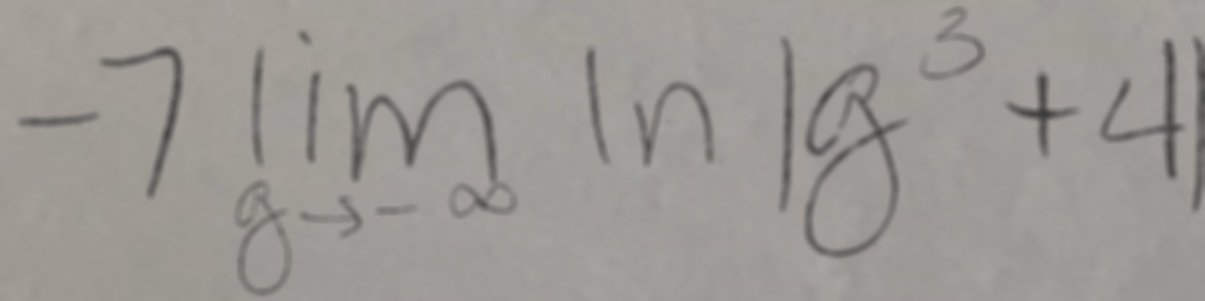 -7 lim ln |g³ + 4|
g→-∞